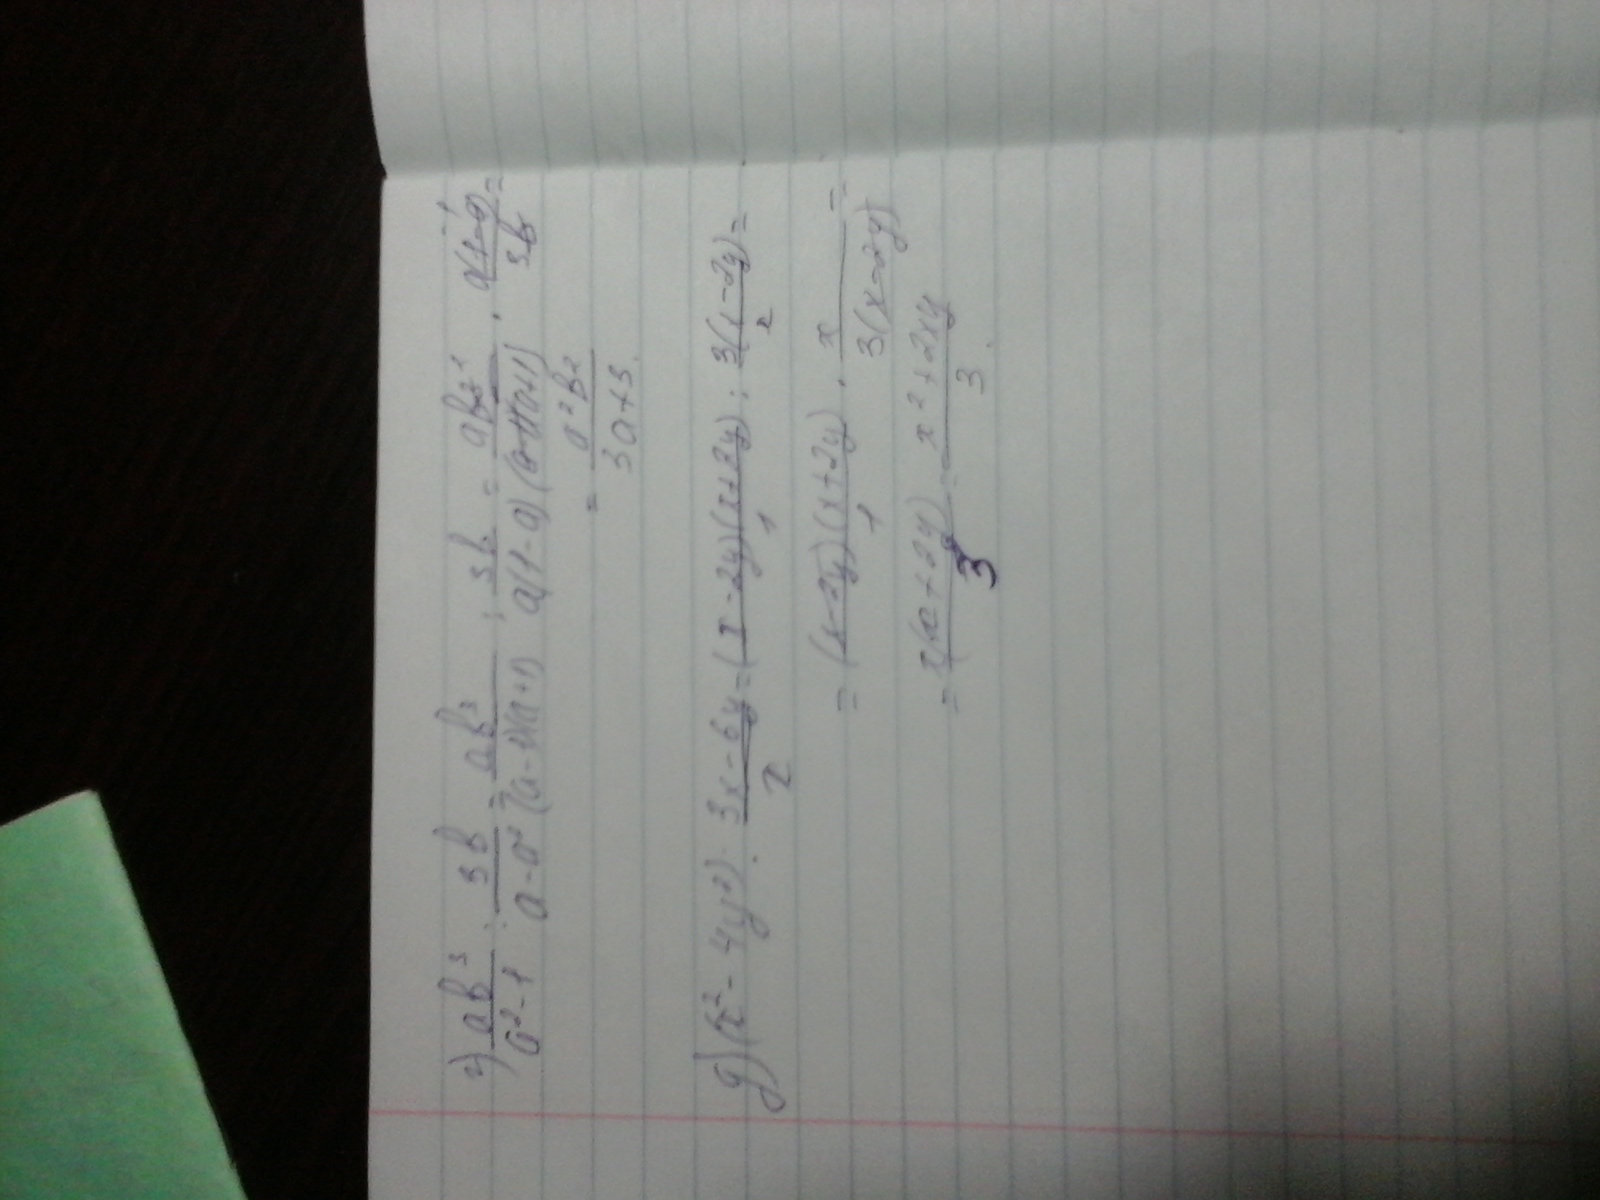 г) ab³/(a²-1) : 3b/(a-a²) = ab³/((a-1)(a+1)) : 3b/(a(1-a)) = ab³/((a-1)(a+1)) · a(1-a)/3b =
= a²b²/(3a+3).
д) (x²-4y²) : (3x-6y)/x = (x-2y)(x+2y)/1 : 3(x-2y)/x =
= (x-2y)(x+2y)/1 · x/(3(x-2y)) =
= x(x+2y)/3 = (x²+2xy)/3.